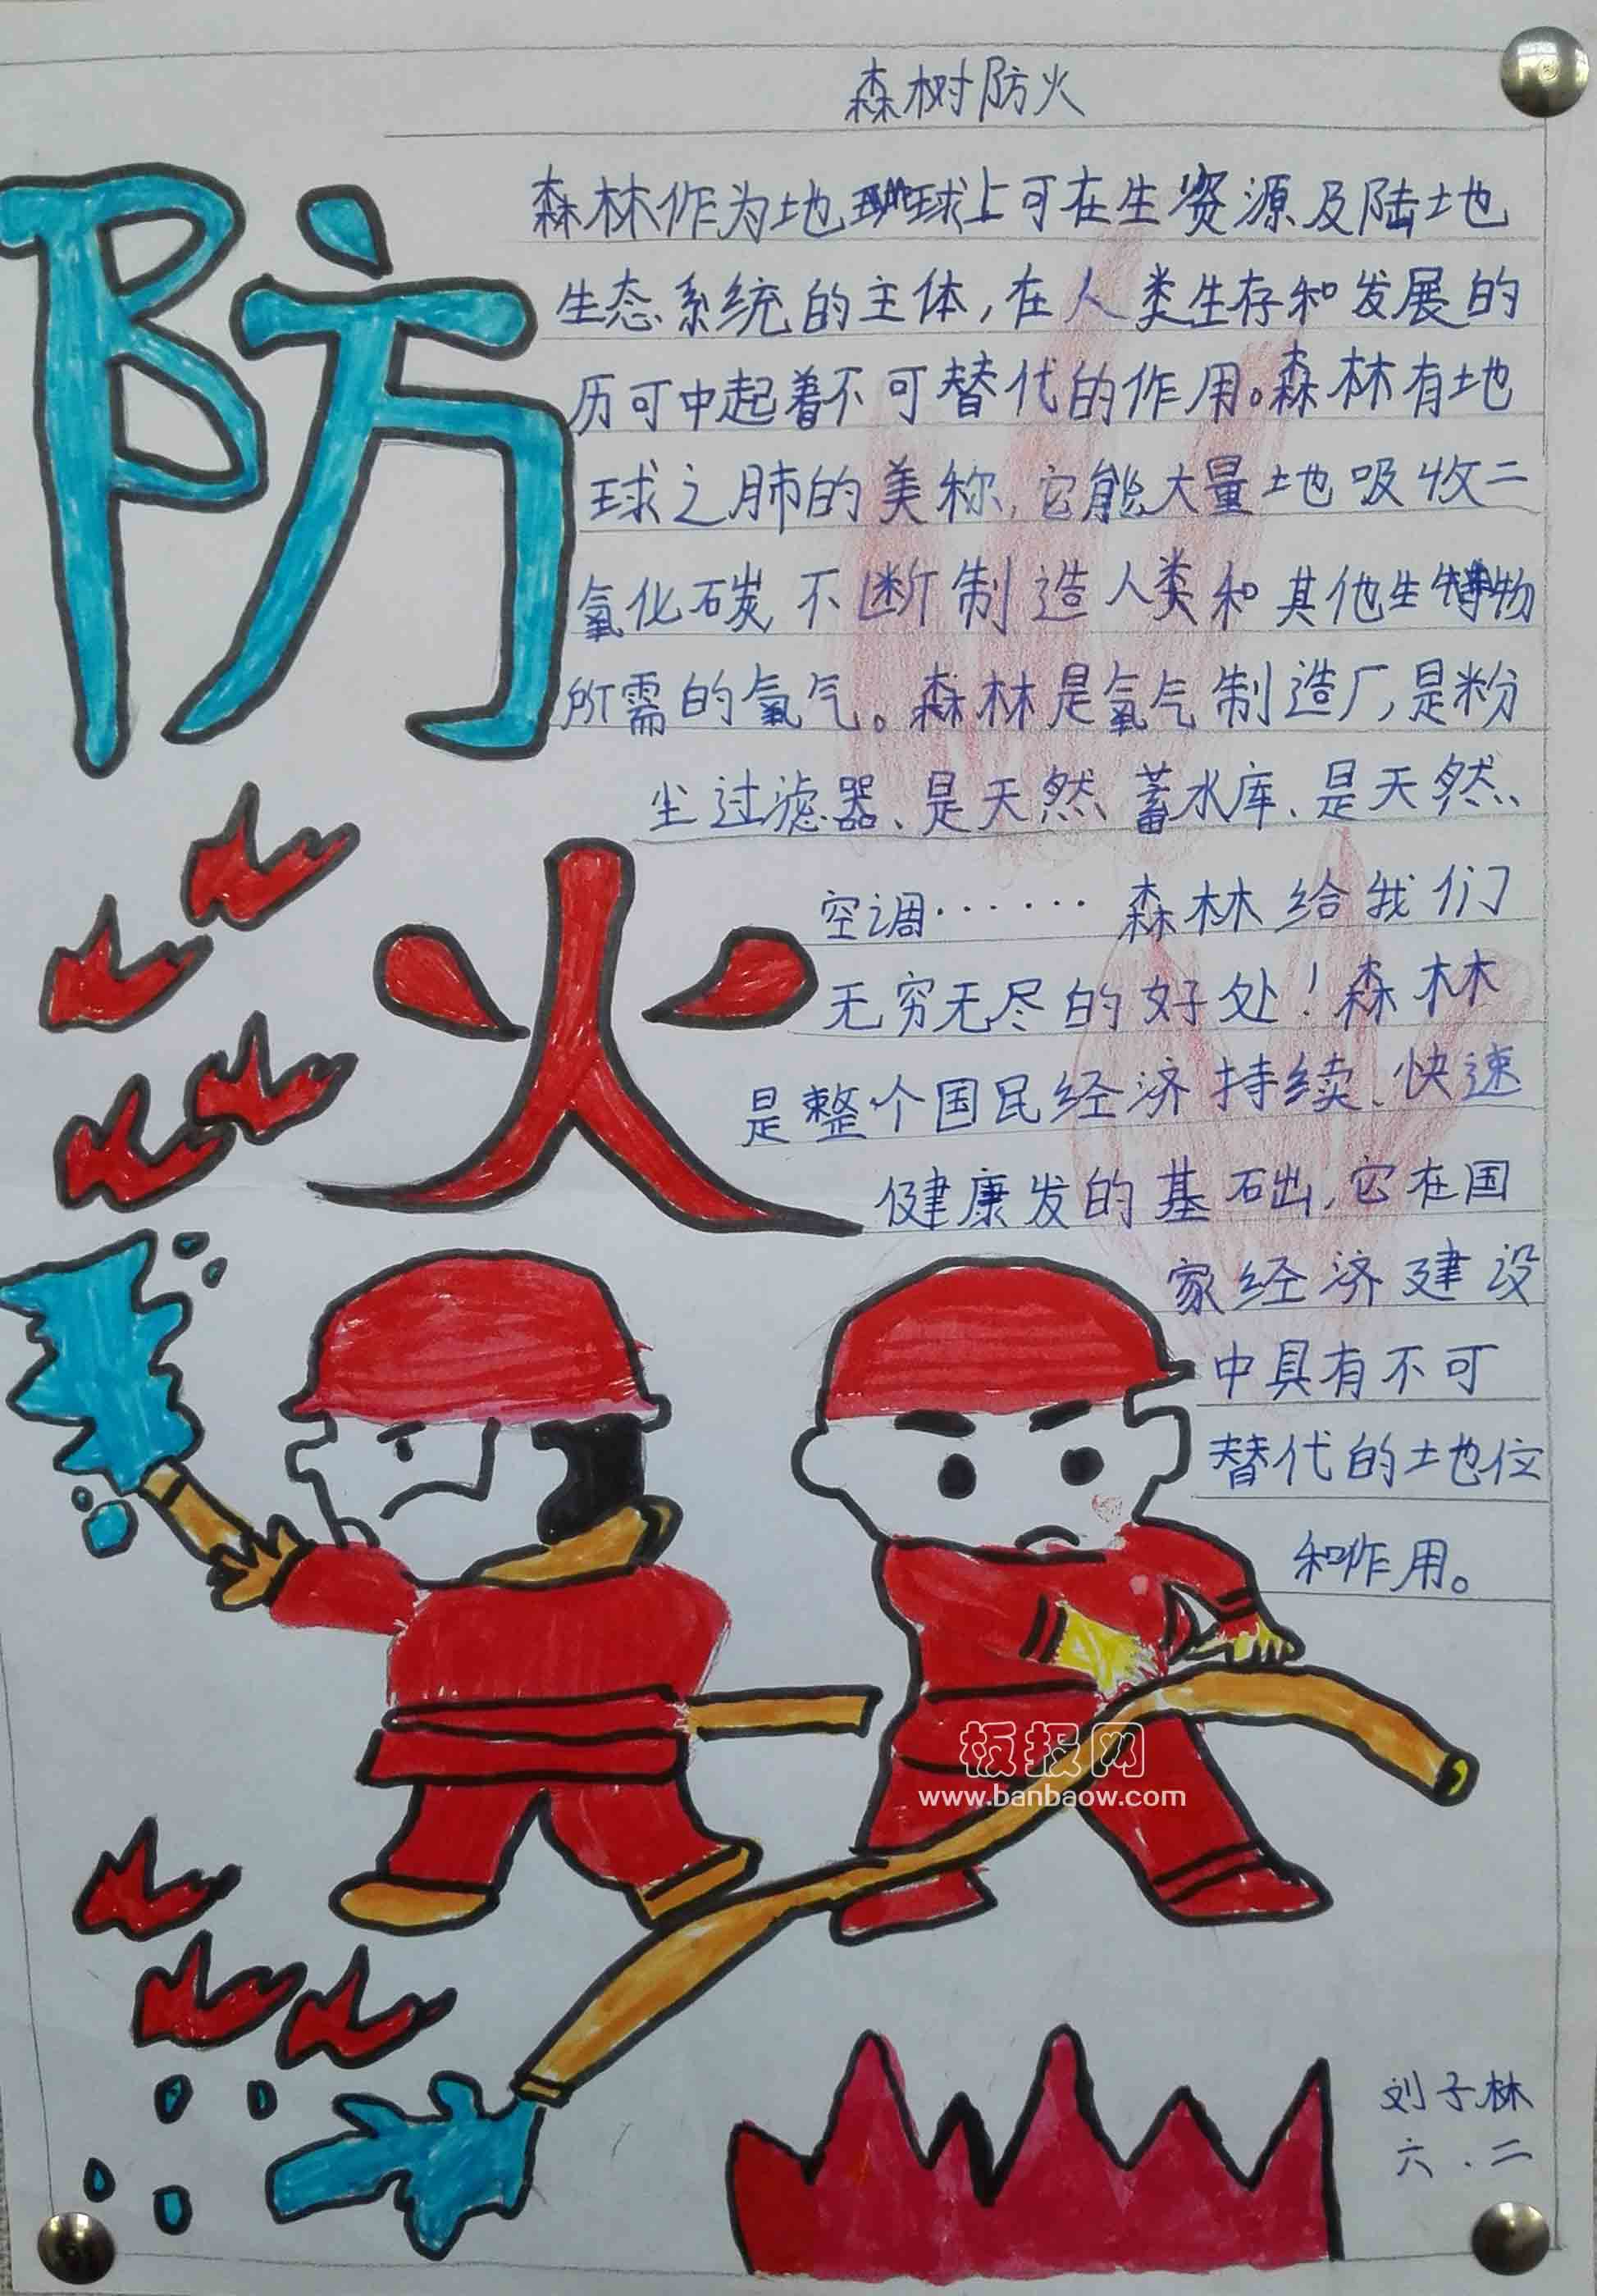 森树防火
防火
森林作为地球上可在生资源及陆地
生态系统的主体,在人类生存和发展的
历可中起着不可替代的作用。森林有地
球之肺的美称,它能大量地吸收二
氧化碳,不断制造人类和其他生物
所需的氧气。森林是氧气制造厂,是粉
尘过滤器、是天然、蓄水库、是天然、
空调······森林给我们
无穷无尽的好处!森林
是整个国民经济持续、快速
健康发的基础,它在国
家经济建设
中具有不可
替代的地位
和作用。
板报网
www.banbaow.com
刘子林
六.二